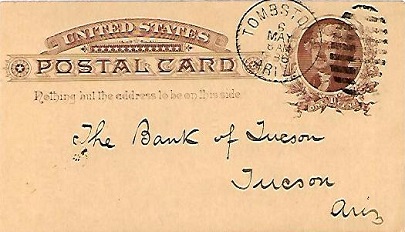 UNITED STATES
POSTAL CARD
Nothing but the address to be on this side.
TOMBSTO
6
MAY
8AM
ARIZ
The Bank of Tucson
Tucson
Ariz